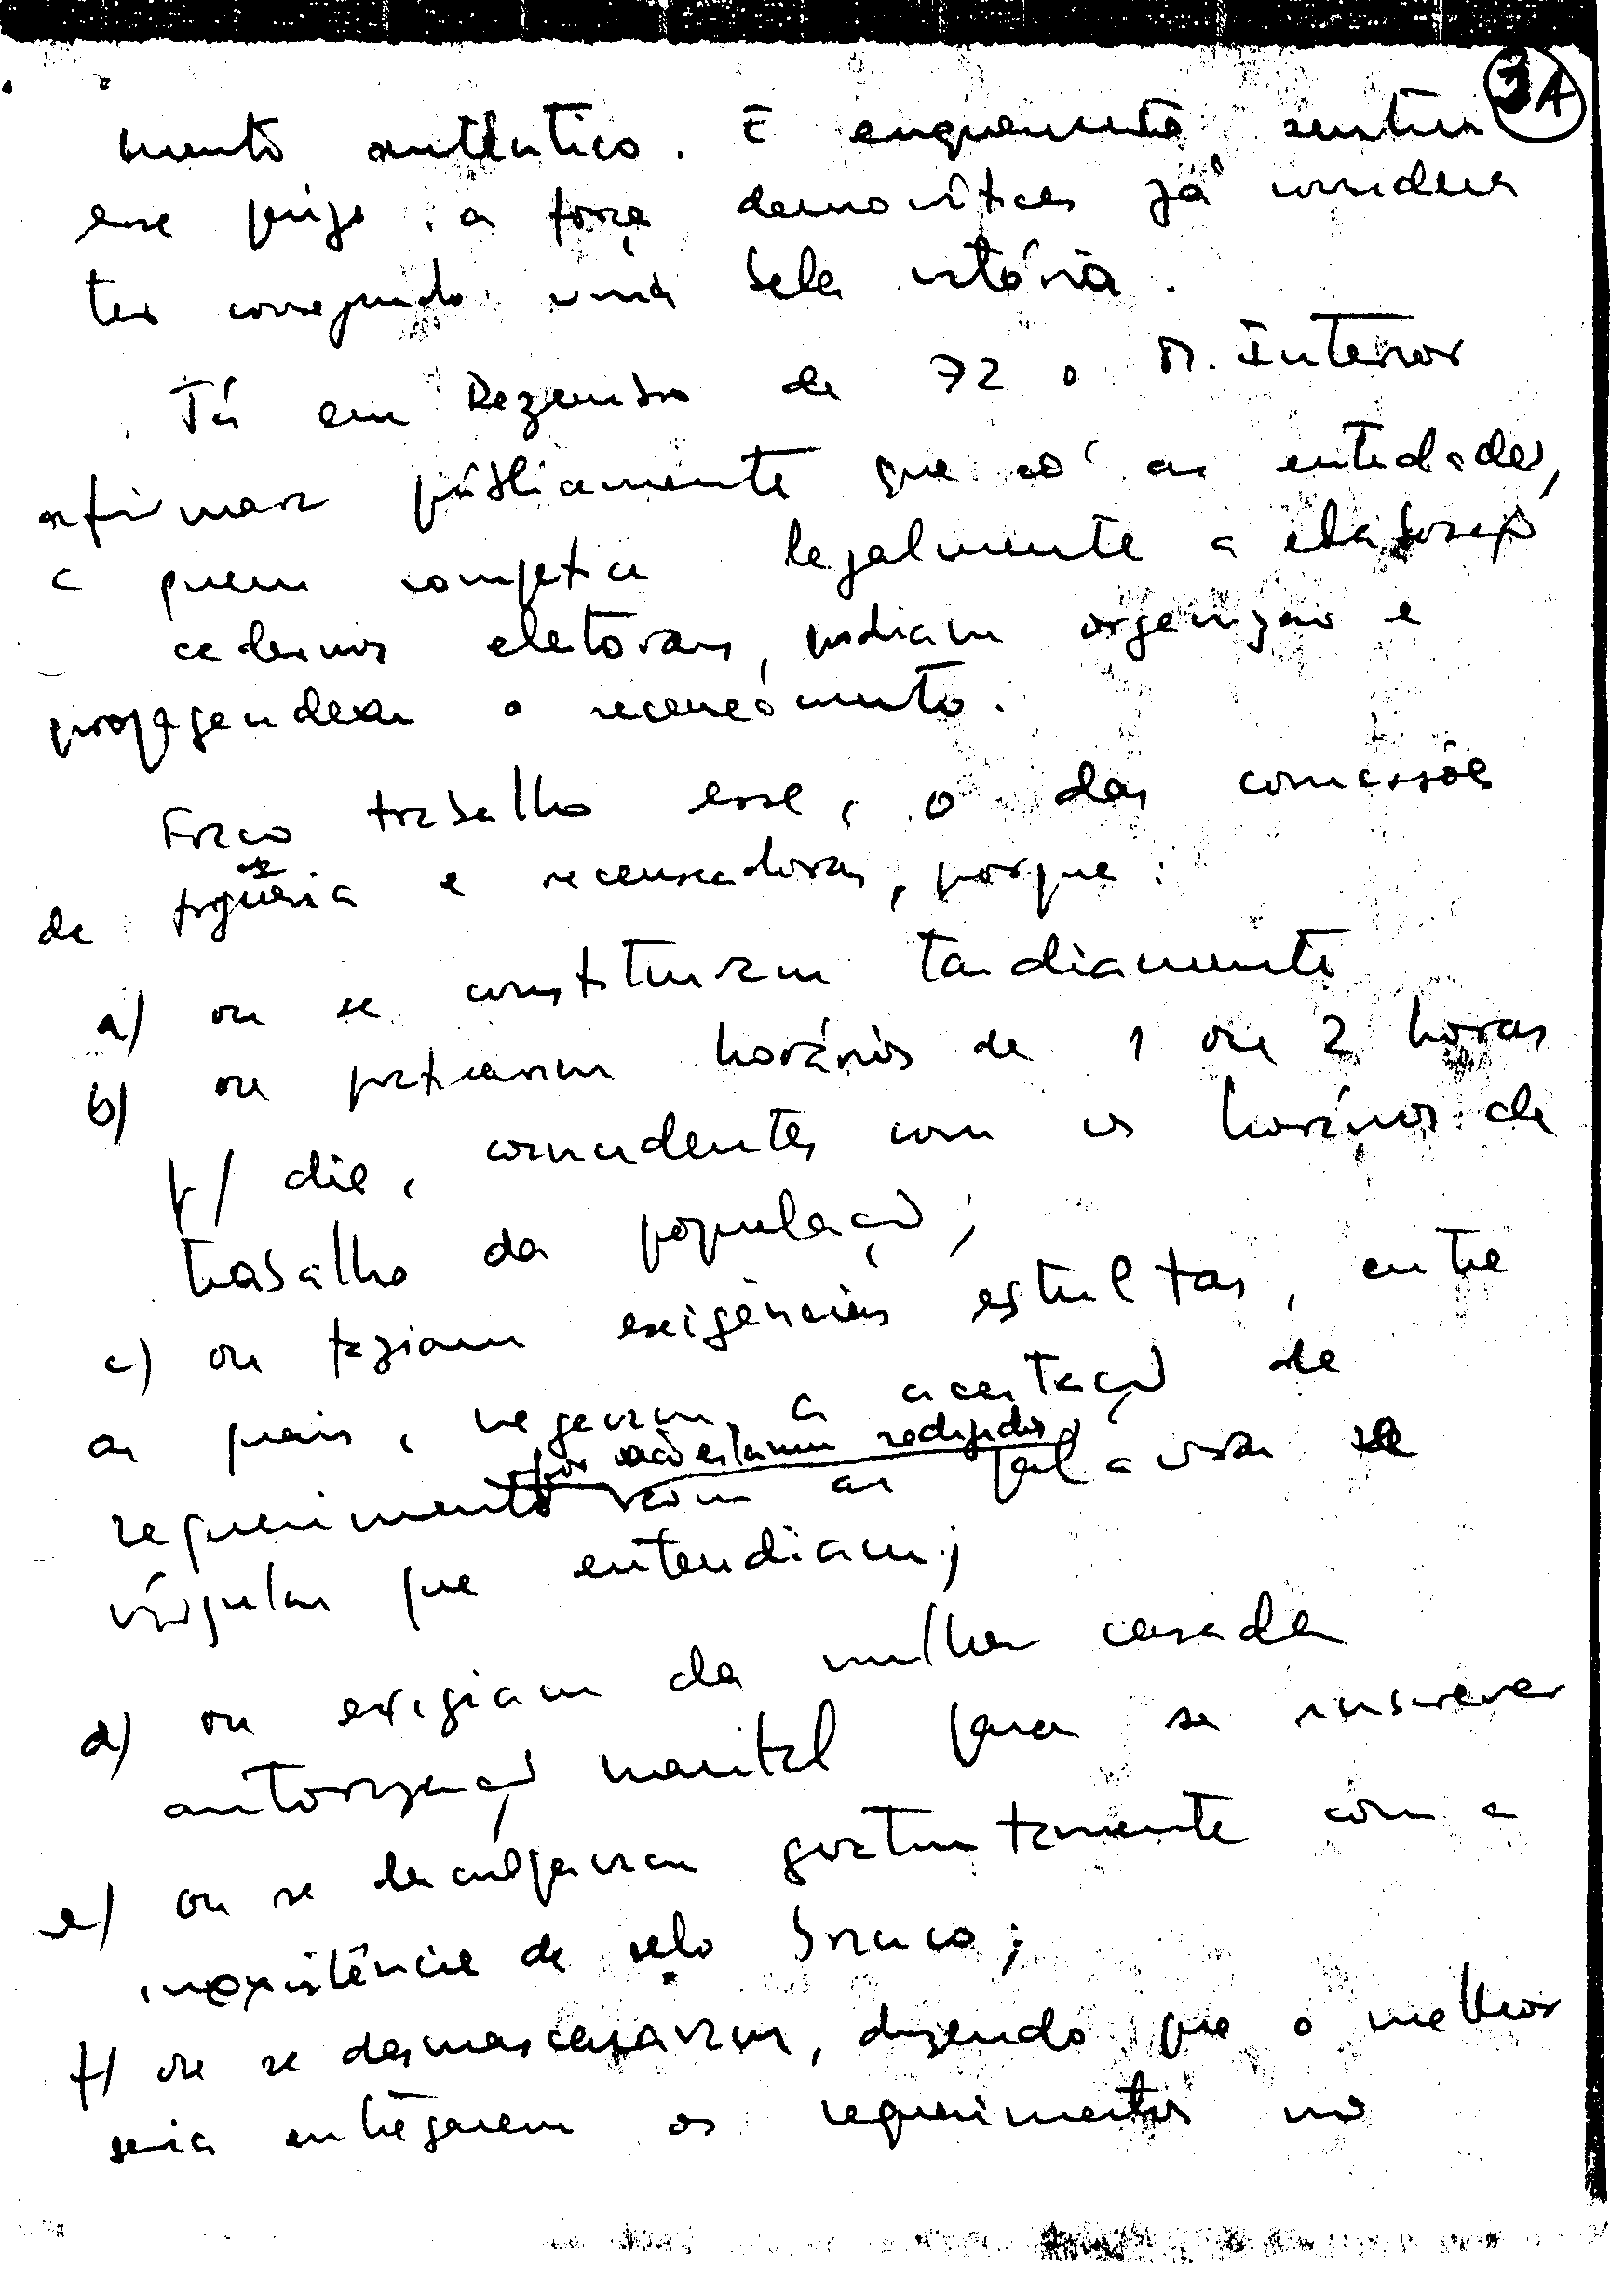 3A
mento autêntico. E enquanto sentir
esse perigo, a força democrática já considera
ter conseguido uma bela vitória.
Já em Dezembro de 72 o M. Interior
afirmara públicamente que só as entidades,
a quem competia legalmente a elaboração
cadernos eleitorais, podiam organizar e
propagandear o recenseamento.
Fraco trabalho esse, o das comissões
de freguesia e recenseadoras, porque:
a) ou se constituiram tardiamente
b) ou praticavam horários de 1 ou 2 horas
p/ dia, coincidentes com os horários de
trabalho da população;
c) ou faziam exigências estultas, entre
as quais, negavam a aceitação de
requerimentos por não estarem redigidos
com as palavras e
vírgulas que entendiam;
d) ou exigiam da mulher casada
autorização marital para se inscrever
e) ou se desculpavam gratuitamente com a
inexistência de selo branco;
f) ou se desmascaravam, dizendo que o melhor
seria entregarem os requerimentos no